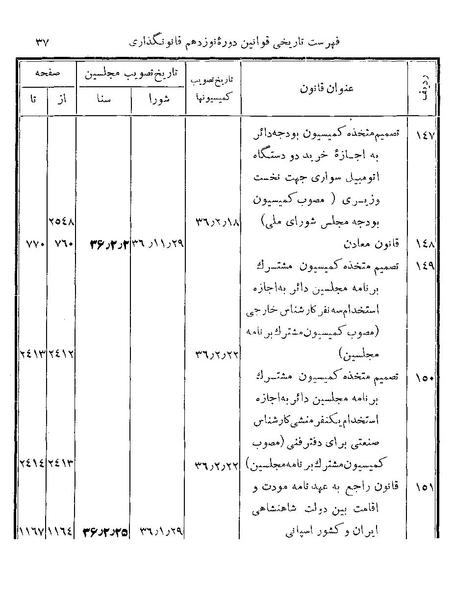 فهرست تاریخی قوانین دورهٔ نوزدهم قانونگذاری
۳۷
ردیف
عنوان قانون
تاریخ تصویب
کمیسیونها
تاریخ تصویب مجلسین
شورا
سنا
صفحه
از
تا
۱٤۷
تصمیم متخذه کمیسیون بودجه دائر
به اجازهٔ خرید دو دستگاه
اتومبیل سواری جهت نخست
وزیری ( مصوب کمیسیون
بودجه مجلس شورای ملی)
۳۶٫۲٫۱۸
۲۵٤۸
۱٤۸
قانون معادن
۳۶٫۱۱٫۲۹
۳۶٫۲٫۲
۷۶۰
۷۷۰
۱٤۹
تصمیم متخذه کمیسیون مشترک
برنامه مجلسین دائر به اجازه
استخدام سه نفر کارشناس خارجی
(مصوب کمیسیون مشترک برنامه
مجلسین)
۳۶٫۲٫۲۲
۲٤۱۲
۲٤۱۳
۱۵۰
تصمیم متخذه کمیسیون مشترک
برنامه مجلسین دائر به اجازه
استخدام یکنفر منشی کارشناس
صنعتی برای دفتر فنی (مصوب
کمیسیون مشترک برنامه مجلسین)
۳۶٫۲٫۲۲
۲٤۱۳
۲٤۱٤
۱۵۱
قانون راجع به عهدنامه مودت و
اقامت بین دولت شاهنشاهی
ایران و کشور اسپانی
۳۶٫۱٫۲۹
۳۶٫۲٫۲۵
۱۱۶٤
۱۱۶۷